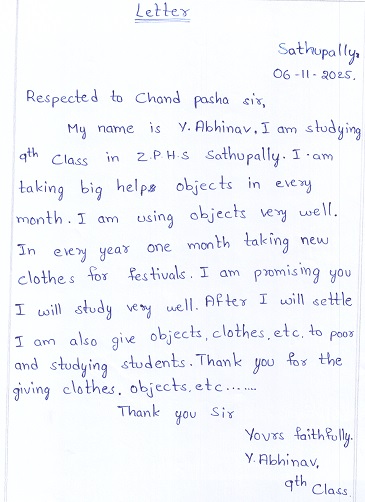 Letter
Sathupally,
06-11-2025.
Respected to Chand pasha sir,
My name is Y. Abhinav. I am studying
9th Class in Z.P.H.S Sathupally. I am
taking big helps objects in every
month. I am using objects very well.
In every year one month taking new
clothes for festivals. I am promising you
I will study very well. After I will settle
I am also give objects, clothes, etc, to poor
and studying students. Thank you for the
giving clothes, objects, etc.......
Thank you Sir
Yours faithfully.
Y. Abhinav,
9th Class.